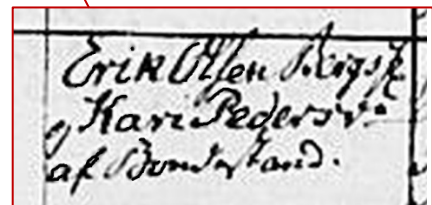 Erik Olsen Bergst
og Kari Pedersd
af Bondestand.